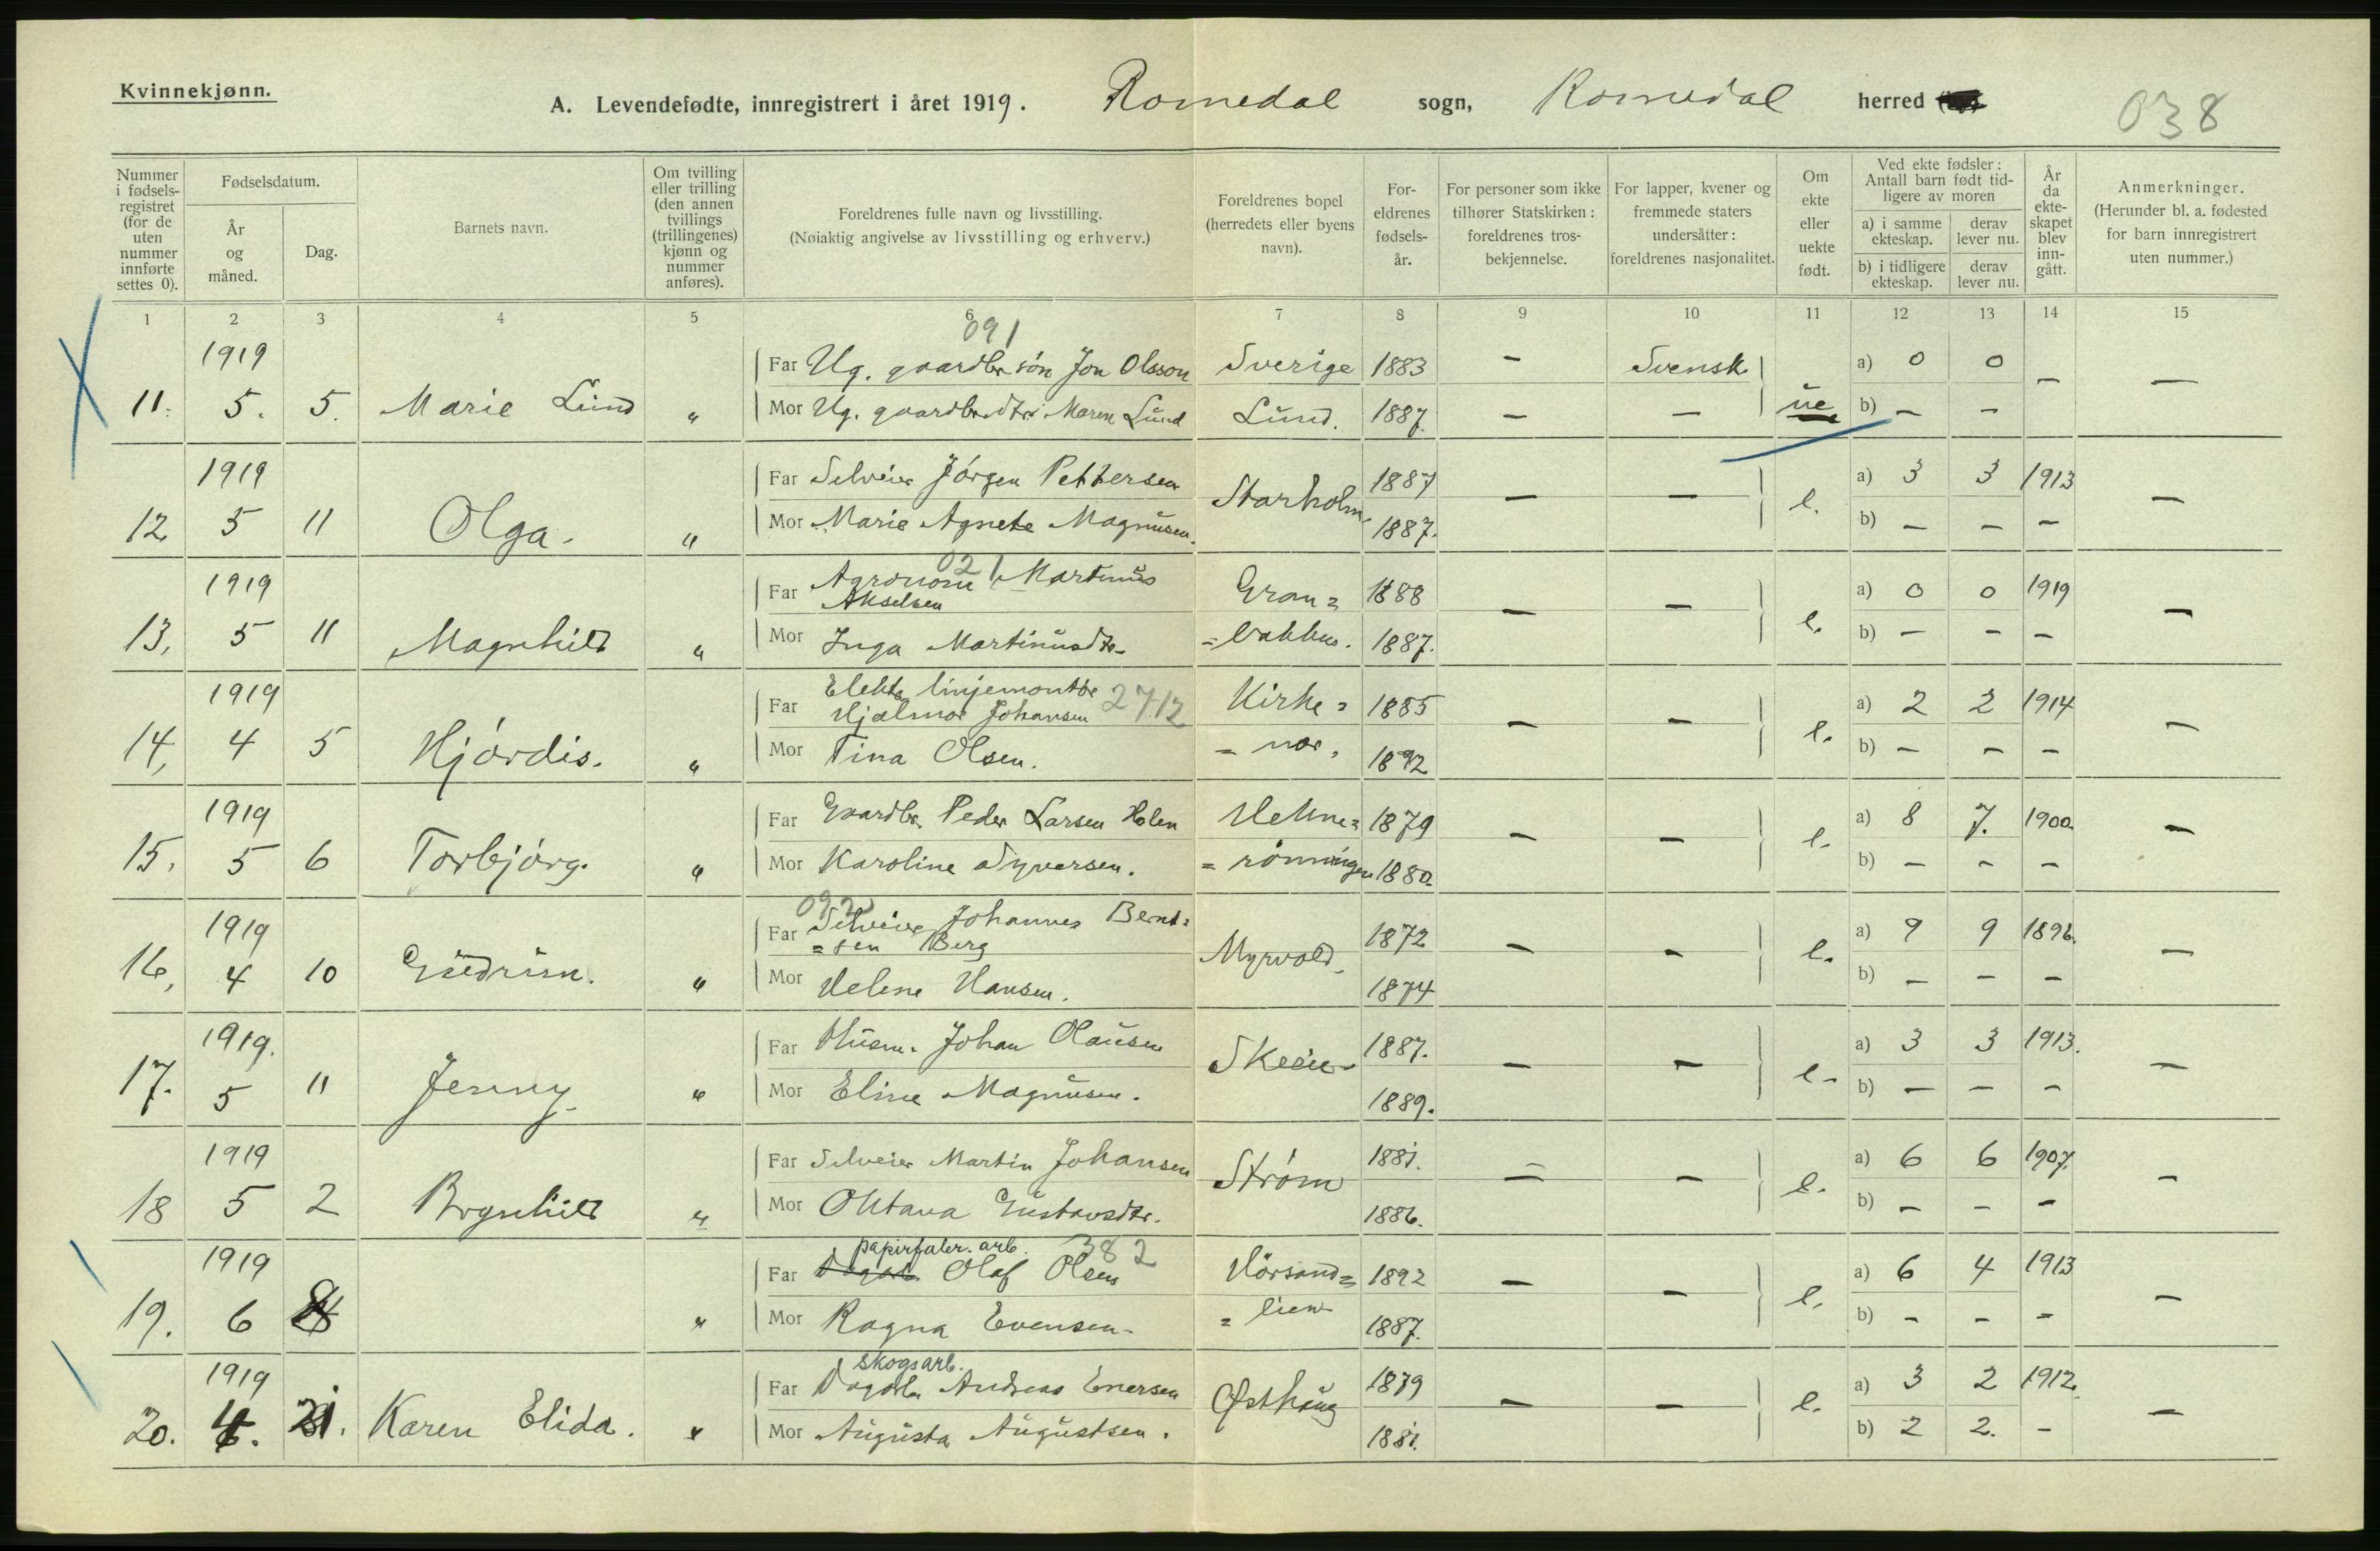 Kvinnekjønn.
A. Levendefødte, innregistrert i året 1919. Romedal sogn, Romedal herred
038
Nummer i fødsels-registret (for de uten nummer innførte settes 0).
Fødselsdatum.
År og måned.
Dag.
Barnets navn.
Om tvilling eller trilling (den annen tvillings (trillingenes) kjønn og nummer anføres).
Foreldrenes fulle navn og livsstilling.
(Nøiaktig angivelse av livsstilling og erhverv.)
Foreldrenes bopel (herredets eller byens navn).
For-eldrenes fødsels-år.
For personer som ikke tilhører Statskirken: foreldrenes tros-bekjennelse.
For lapper, kvener og fremmede staters undersåtter: foreldrenes nasjonalitet.
Om ekte eller uekte født.
Ved ekte fødsler: Antall barn født tid-ligere av moren
a) i samme ekteskap. derav lever nu.
b) i tidligere ekteskap. derav lever nu.
År da ekte-skapet blev inn-gått.
Anmerkninger.
(Herunder bl. a. fødested for barn innregistrert uten nummer.)
1 2 3 4 5 6 7 8 9 10 11 12 13 14 15
091
1919 Far Ug. gaardbr. søn Jon Olsson Sverige 1883 - Svensk a) 0 0 -
11. 5. 5. Marie Lund " Mor Ug. gaardbr.dtr. Maren Lund Lund. 1887. - - ue b) - - -
1919 Far Selveier Jörgen Pettersen Starholm. 1887 - - e. a) 3 3 1913 -
12 5 11 Olga. " Mor Marie Agnete Magnusen. 1887. b) - - -
021
1919 Far Agronom Martinus Akselsen Gran= 1888 - - e. a) 0 0 1919 -
13, 5 11 Magnhild " Mor Inga Martinusdtr. =bakken. 1887. b) - - -
1919 Far Elektr. linjemontör Hjalmar Johansen 2712 Kirke= 1885 - - e. a) 2 2 1914 -
14, 4 5 Hjördis. " Mor Tina Olsen. 1892 b) - - -
1919 Far Gaardbr. Peder Larsen Holen 1879 - - e. a) 8 7. 1900. -
15. 5 6 Torbjörg. " Mor Karoline Syversen. =rönningen 1880. b) - - -
092
1919 Far Selveier Johannes Bernt= =sen Berg Myrvold 1872 - - e. a) 9 9 1896. -
16, 4 10 Gudrun. " Mor Helene Hansen. 1874 b) - - -
1919. Far Husm. Johan Olausen 1887. - - e. a) 3 3 1913. -
17. 5 11 Jenny. " Mor Eline Magnusen. 1889. b) - - -
1919 Far Selveier Martin Johansen Ström 1881. - - e. a) 6 6 1907. -
18 5 2 Brynhild " Mor Oktava Gustavsdtr. 1886. b) - - -
papirfabr. arb. 382
1919 Far Olaf Olsen Hörsand= 1892 - - e. a) 6 4 1913 -
19. 6 " Mor Ragna Evensen. =lien 1887. b) - - -
skogsarb.
1919 Far Dagarb. Andreas Enersen Østhaug 1879 - - e. a) 3 2 1912. -
20. 4. 21. Karen Elida. " Mor Augusta Augustsen. 1881. b) 2 2. -